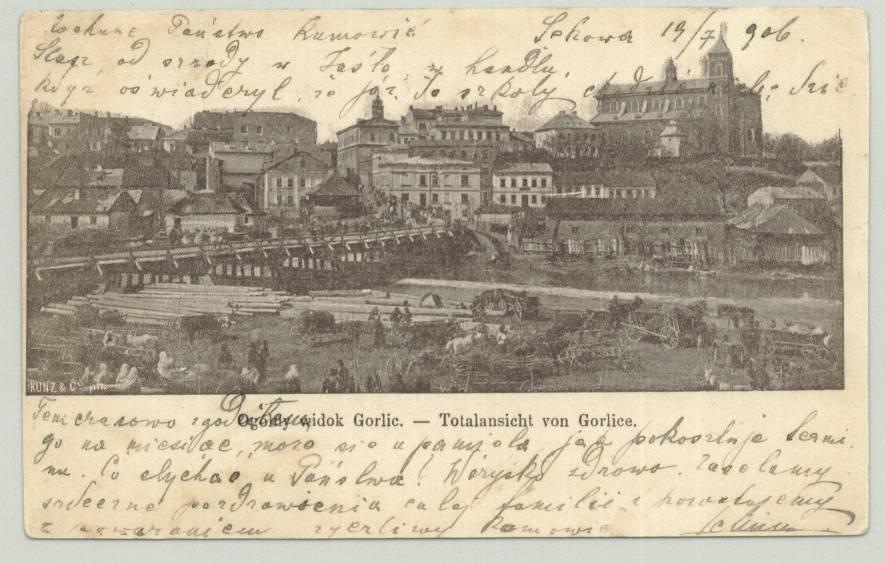 Kochane Państwo Kumowie Sękowa 19/7 906.
Staś od srody w Jaśle w handlu,
kdyż oświadczył, że już do szkoły chodzić nie
KUNZ & Co ph.
Ogólny widok Gorlic. — Totalansicht von Gorlice.
Temczasowo zgodziłem
go na miesiąc, może się upamięta jak pokosztuje termi
nu. Co słychać u Państwa? Wszysko zdrowo. Zasełamy
srdeczne pozdrowienia całej familii i powstajemy
z powarzaniem rzyczliwy Kumowie